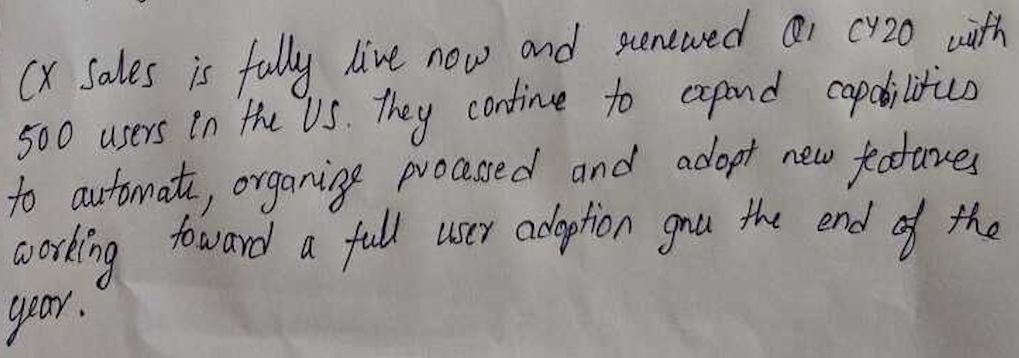 CX Sales is fully live now and renewed Q1 CY20 with
500 users in the US. They continue to expand capabilities
to automate, organize processed and adopt new features
working toward a full user adoption the end of the
year.